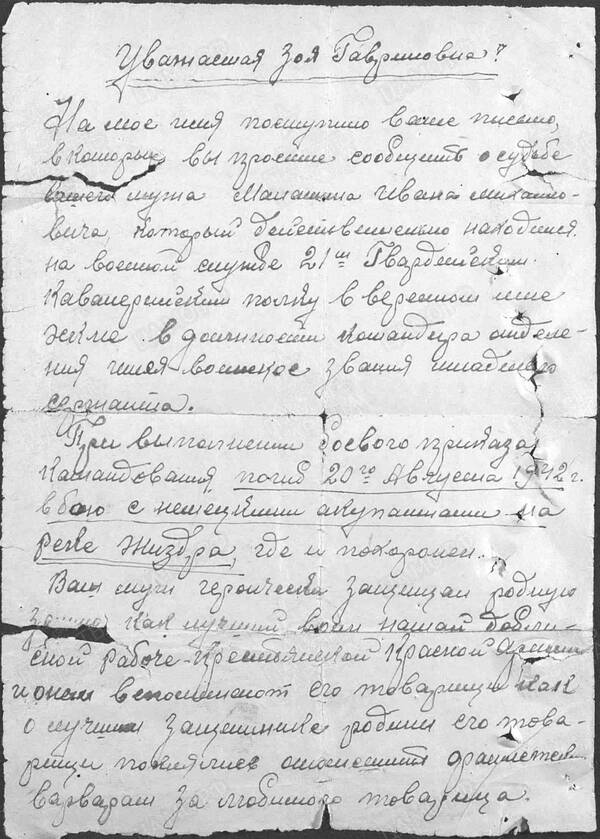 Уважаемая Зоя Гавриловна!
На мое имя поступило ваше письмо,
в которых вы просите сообщить о судьбе
вашего мужа Малашина Ивана Михайло-
вича, который действительно находился
на военной службе 21ш Гвардейским
Кавалерийским полку в
в должности командира отделе-
ния имея воинское звания младшего
сержанта.
При выполнении боевого приказа
командования, погиб 20го Августа 1942 г.
в бою с немецкими акупантами на
реке Жиздра, где и похоронен.
Ваш муж героически защищал родную
землю как лучший воин нашей добле-
сной рабоче-крестьянской Красной Армии
и о нем вспоминают его товарищи как
о лучшем защитнике родины его това-
рищи поклялись отомстить фашистским
варварам за любимого товарища.